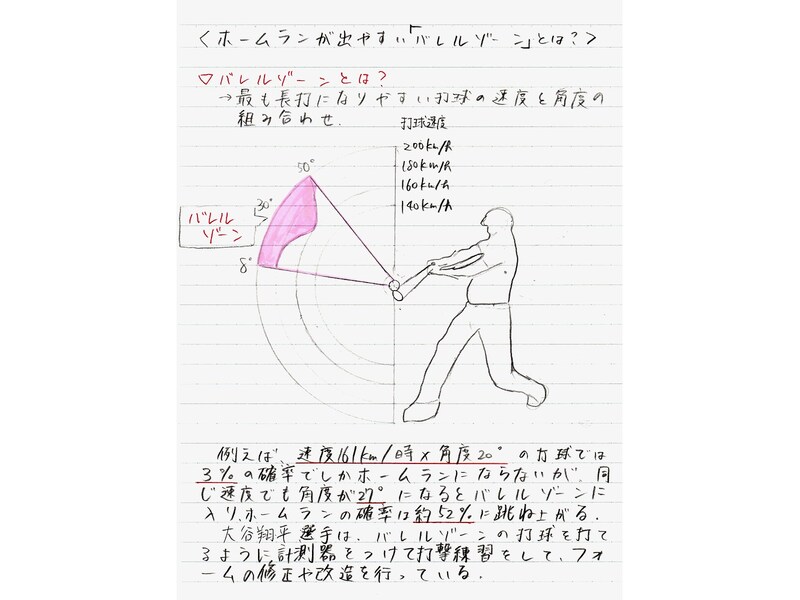 <ホームランが出やすい「バレルゾーン」とは?>
▽バレルゾーンとは?
→最も長打になりやすい打球の速度と角度の
組み合わせ.
打球速度
200km/h
180km/h
160km/h
140km/h
50°
30°
バレル
ゾーン
8°
例えば、速度161km/時×角度20°の打球では
3%の確率でしかホームランにならないが、同
じ速度でも角度が27°になるとバレルゾーンに
入り、ホームランの確率は約52%に跳ね上がる.
大谷翔平選手は、バレルゾーンの打球を打て
るように計測器をつけて打撃練習をして、フォ
ームの修正や改造を行っている.